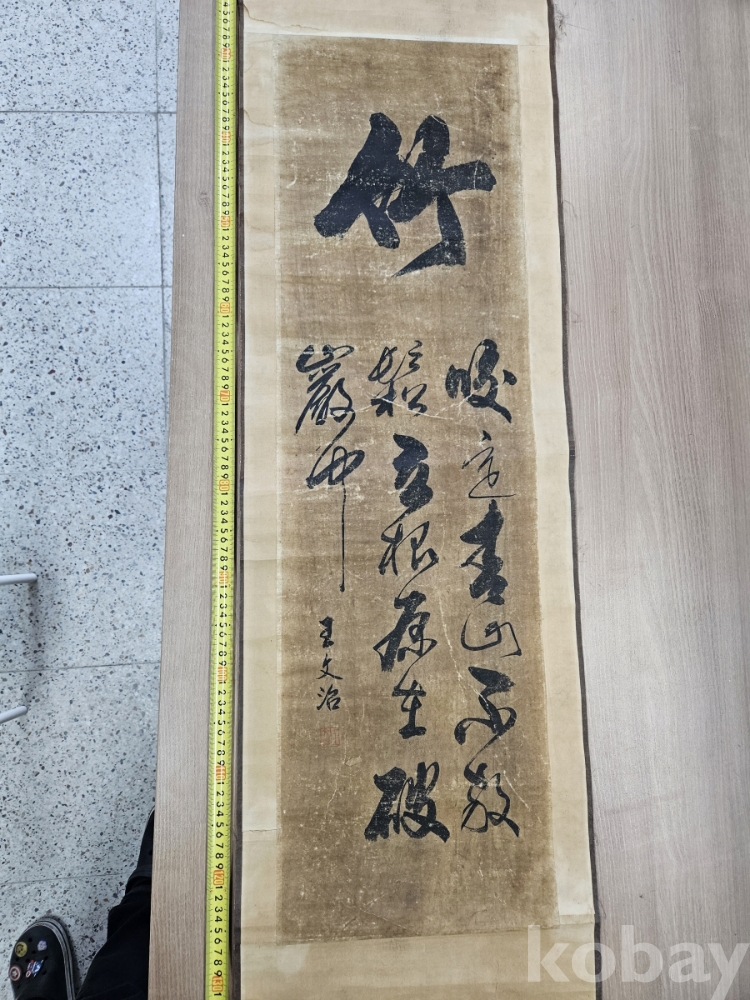 竹
咬定青山不放
鬆立根原在破
巖中
王文治
kobay